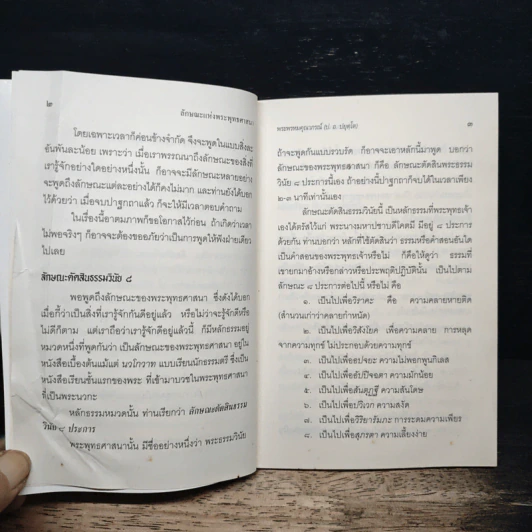 ๒
ลักษณะแห่งพระพุทธศาสนา
โดยเฉพาะเวลาก็ค่อนข้างจำกัด จึงจะพูดในแบบสิ่งละ
อันพันละน้อย เพราะว่า เมื่อเราพรรณนาถึงลักษณะของสิ่งที่
เรารู้จักอย่างใดอย่างหนึ่งนั้น ก็อาจจะมีลักษณะหลายอย่าง
จะพูดถึงลักษณะแต่ละอย่างได้ก็คงไม่มาก และท่านยังได้บอก
ไว้ด้วยว่า เมื่อจบปาฐกถาแล้ว ก็จะให้มีเวลาตอบคำถาม
ในเรื่องนี้อาตมภาพก็ขอโอกาสไว้ก่อน ถ้าเกิดว่าเวลา
ไม่พอจริงๆ ก็อาจจะต้องขออภัยว่าเป็นการพูดให้ฟังฝ่ายเดียว
ไปเลย
ลักษณะตัดสินธรรมวินัย ๘
พอพูดถึงลักษณะของพระพุทธศาสนา ซึ่งดังได้บอก
เมื่อกี้ว่าเป็นสิ่งที่เรารู้จักกันดีอยู่แล้ว หรือไม่ว่าจะรู้จักดีหรือ
ไม่ดีก็ตาม แต่เราถือว่ารู้จักดีอยู่แล้วนี้ ก็มีหลักธรรมอยู่
หมวดหนึ่งที่พูดกันว่า เป็นลักษณะของพระพุทธศาสนา อยู่ใน
หนังสือเบื้องต้นแม้แต่ นวโกวาท แบบเรียนนักธรรมตรี ซึ่งเป็น
หนังสือเรียนชั้นแรกของพระ ที่เข้ามาบวชในพระพุทธศาสนา
ที่เป็นพระนวกะ
หลักธรรมหมวดนั้น ท่านเรียกว่า ลักษณะตัดสินธรรม
วินัย ๘ ประการ
พระพุทธศาสนานั้น มีชื่ออย่างหนึ่งว่า พระธรรมวินัย
พระพรหมคุณาภรณ์ (ป. อ. ปยุตฺโต)
๓
ถ้าจะพูดกันแบบรวบรัด ก็อาจจะเอาหลักนี้มาพูด บอกว่า
ลักษณะของพระพุทธศาสนา ก็คือ ลักษณะตัดสินพระธรรม
วินัย ๘ ประการนี้เอง ถ้าอย่างนี้ปาฐกถาก็จบได้ในเวลาเพียง
๒-๓ นาทีเท่านั้นเอง
ลักษณะตัดสินธรรมวินัยนี้ เป็นหลักธรรมที่พระพุทธเจ้า
เองได้ตรัสไว้แก่ พระนางมหาปชาบดีโคตมี มีอยู่ ๘ ประการ
ด้วยกัน ท่านบอกว่า หลักที่ใช้ตัดสินว่า ธรรมหรือคำสอนอันใด
เป็นคำสอนของพระพุทธเจ้าหรือไม่ ก็คือให้ดูว่า ธรรมที่
เขายกมาอ้างหรือกล่าวหรือประพฤติปฏิบัตินั้น เป็นไปตาม
ลักษณะ ๘ ประการต่อไปนี้ หรือไม่ คือ
๑. เป็นไปเพื่อวิราคะ คือ ความคลายหายติด
(สำนวนเก่าว่าคลายกำหนัด)
๒. เป็นไปเพื่อวิสังโยค เพื่อความคลาย การหลุด
จากความทุกข์ ไม่ประกอบด้วยความทุกข์
๓. เป็นไปเพื่ออปจยะ ความไม่พอกพูนกิเลส
๔. เป็นไปเพื่ออัปปิจฉตา ความมักน้อย
๕. เป็นไปเพื่อสันตุฏฐี ความสันโดษ
๖. เป็นไปเพื่อปวิเวก ความสงัด
๗. เป็นไปเพื่อวิริยารัมภะ การระดมความเพียร
๘. เป็นไปเพื่อสุภรตา ความเลี้ยงง่าย